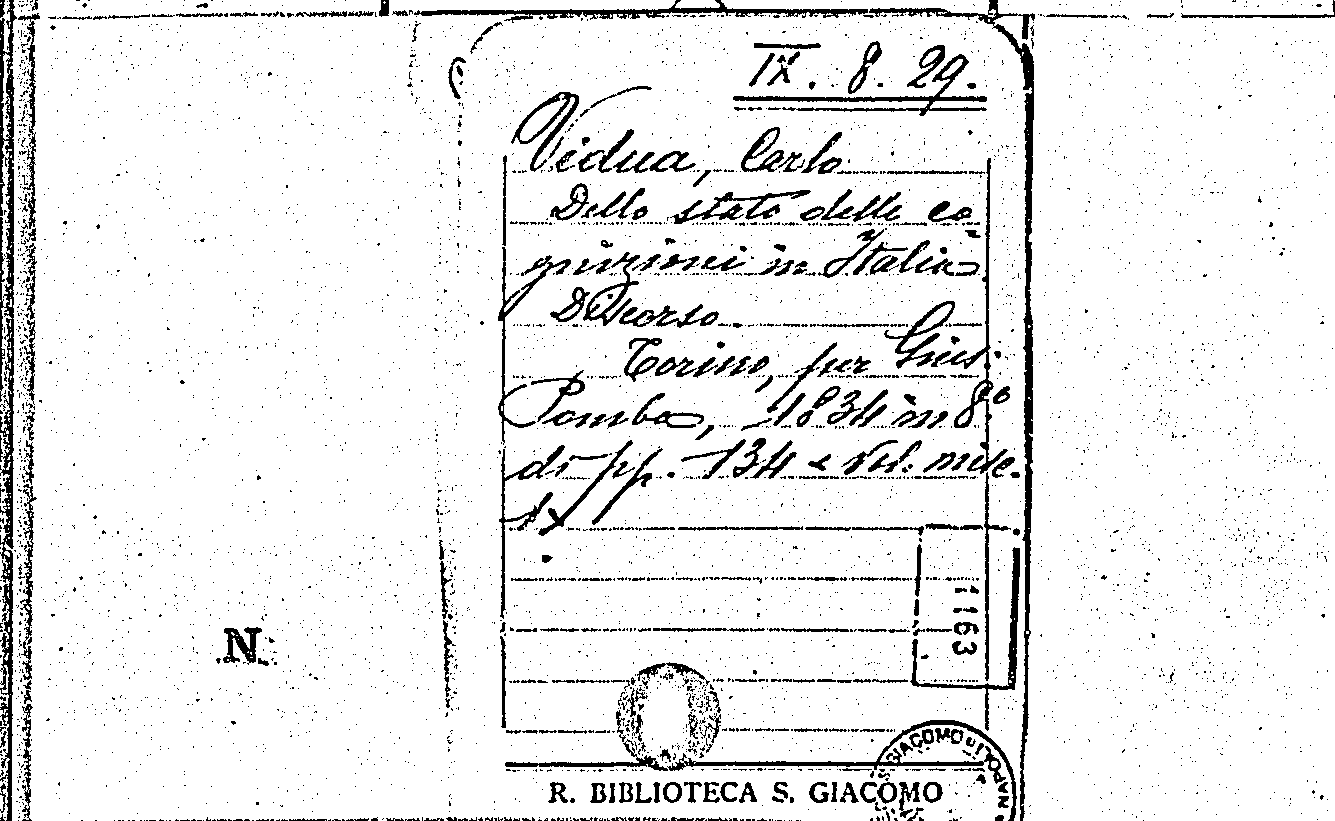 IX. 8. 29.
Vidua, Carlo
Dello stato delle co-
gnizioni in Italia
Discorso.
Torino, per Gius.
Pomba, 1834 in 8.º
di pp. 134 e vol. misc.
1163
N.
R. BIBLIOTECA S. GIACOMO
S. GIACOMO DI NAPOLI